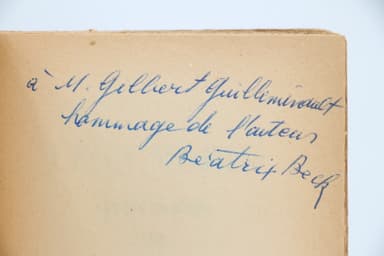 à M. Gilbert Guilleminault
hommage de l'auteur
Béatrix Beck